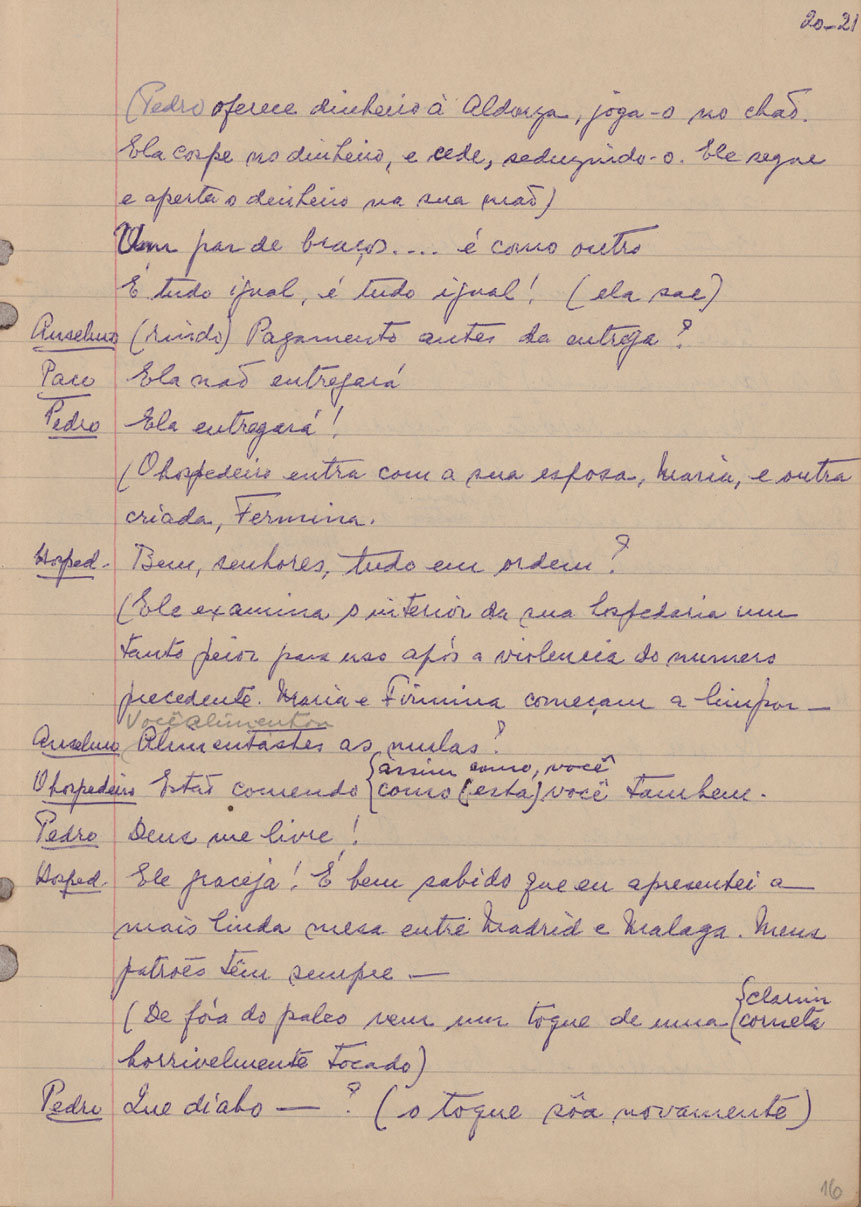 20-21
(Pedro oferece dinheiro à Aldonza, joga-o no chão.
Ela cospe no dinheiro, e cede, seduzindo-o. Ele segue
e aperta o dinheiro na sua mão)
Um par de braços.... é como outro
É tudo igual, é tudo igual! (ela sae)
Anselmo (rindo) Pagamento antes da entrega?
Paco Ela não entregará
Pedro Ela entregará!
(O hospedeiro entra com a sua esposa, Maria, e outra
criada, Fermina.
Hosped. Bem, senhores, tudo em ordem?
(Ele examina o interior da sua hospedaria um
tanto peior para uso após a violencia do numero
precedente. Maria e Firmina começam a limpar —
Você alimentou
Anselmo Alimentastes as mulas?
{assim como, você
O hospedeiro Estão comendo {como (está) você tambem.
Pedro Deus me livre!
Hosped. Ele graceja! É bem sabido que eu apresentei a
mais linda mesa entre Madrid e Malaga. Meus
patrões têm sempre —
{clarim
(De fóra do palco vem um toque de uma {corneta
horrivelmente tocado)
Pedro Que diabo — ? (o toque sôa novamente)
16